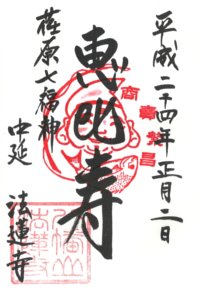 平成二十四年正月二日
商売繁昌
恵比寿
荏原七福神
中延 法蓮寺